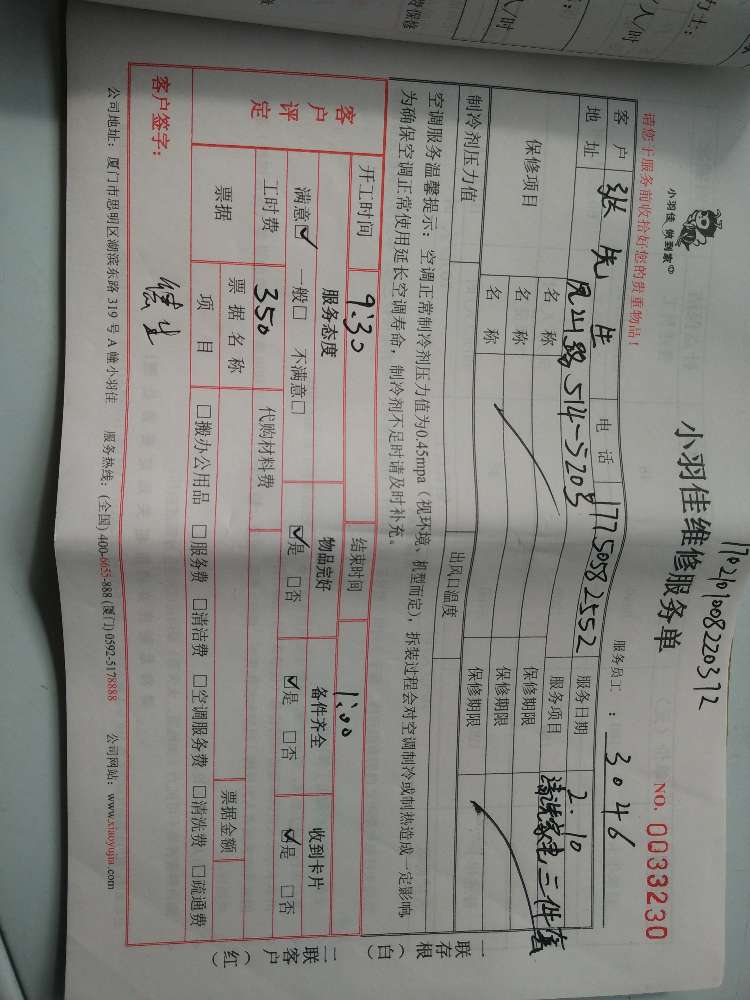 17021010082203​12
小羽佳 做到家
小羽佳维修服务单
NO. 0033230
请您于服务前收拾好您的贵重物品！
服务员工：3046
客户 张先生 电话 17750582552 服务日期 2.10
地址 凤山路514-5203 服务项目 清洗家电三件套
保修项目 名称 保修期限
名称 保修期限
名称 保修期限
制冷剂压力值 出风口温度
空调服务温馨提示：空调正常制冷剂压力值为0.45mpa（视环境、机型而定），拆装过程会对空调制冷或制热造成一定影响，
为确保空调正常使用延长空调寿命，制冷剂不足时请及时补充。
开工时间 9:30 结束时间 1:00
客户评定 服务态度 物品完好 备件齐全 收到卡片
满意☑ 一般□ 不满意□ ☑是 □否 ☑是 □否 ☑是 □否
工时费 350 代购材料费
票据 票据名称 票据金额
项目 □搬办公用品 □服务费 □清洁费 □空调服务费 □清洗费 □疏通费
客户签字：
公司地址：厦门市思明区湖滨东路 319 号 A 幢小羽佳 服务热线：(全国) 400-6655-888 (厦门) 0592-5178888 公司网站：www.xiaoyujia.com
一联存根（白）
二联客户（红）